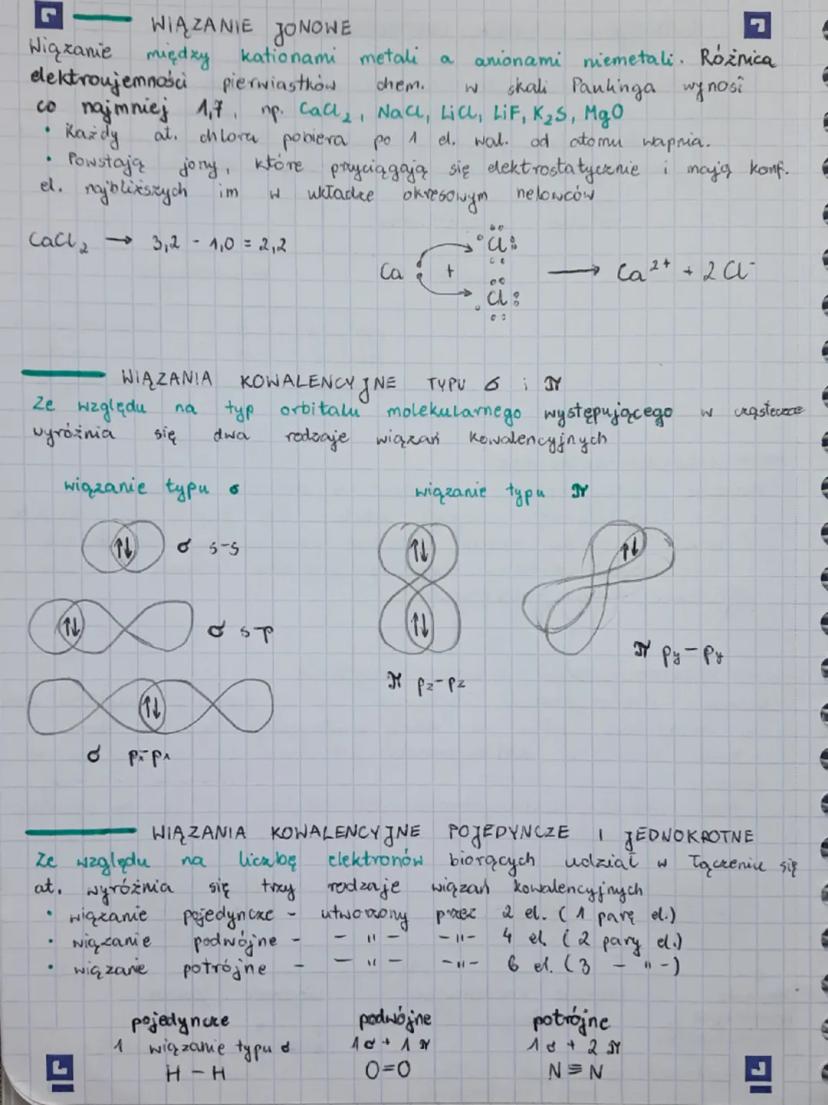 WIĄZANIE JONOWE
Wiązanie między kationami metali a anionami niemetali. Różnica
elektroujemności pierwiastków chem. w skali Paulinga wynosi
co najmniej 1,7, np. CaCl₂, NaCl, LiCl, LiF, K₂S, MgO
• Każdy at. chloru pobiera po 1 el. wal. od atomu wapnia.
• Powstają jony, które przyciągają się elektrostatycznie i mają konf.
el. najbliższych im w układze okresowym helowców
CaCl₂ → 3,2 - 1,0 = 2,2
Ca + Cl Cl → Ca²⁺ + 2Cl⁻
WIĄZANIA KOWALENCYJNE TYPU σ i π
Ze względu na typ orbitalu molekularnego występującego w cząsteczce
wyróżnia się dwa rodzaje wiązań kowalencyjnych
wiązanie typu σ wiązanie typu π
↑↓ σ s-s ↑↓ ↑↓
↑↓ σ s-p ↑↓
π py-py
π pz-pz
↑↓
σ px-px
WIĄZANIA KOWALENCYJNE POJEDYNCZE I JEDNOKROTNE
Ze względu na liczbę elektronów biorących udział w łączeniu się
at. wyróżnia się trzy rodzaje wiązań kowalencyjnych
• wiązanie pojedyncze - utworzony przez 2 el. (1 parę el.)
• wiązanie podwójne - -"- -"- 4 el. (2 pary el.)
• wiązanie potrójne - -"- -"- 6 el. (3 -"-)
pojedyncze podwójne potrójne
1 wiązanie typu σ 1σ + 1π 1σ + 2π
H-H O=O N≡N